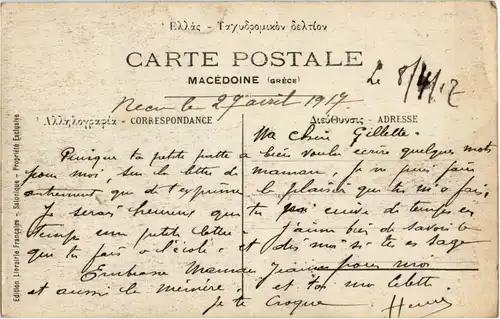 Ελλάς - Ταχυδρομικόν δελτίον
CARTE POSTALE
MACÉDOINE (GRÈCE)
Le 8/4/17
Recu le 29 avril 1917
Αλληλογραφία - CORRESPONDANCE
Διεύθυνσις - ADRESSE
Ma chère Gillette.
Puisque ta petite patte a bien voulu écrire quelques mots
pour moi, sur la lettre de maman, je ne puis faire
autrement que de t'exprimer le plaisir que tu m'a fais.
Je serais heureux que tu de temps en
temps une petite lettre. J'aime bien de savoir ce
que tu fais à l'école, et dis moi si tu es sage
Embrasse Maman, pour moi
et aussi la mémère, et toi ma
je te croque Henri
Edition Librairie Française - Salonique - Propriété Exclusive